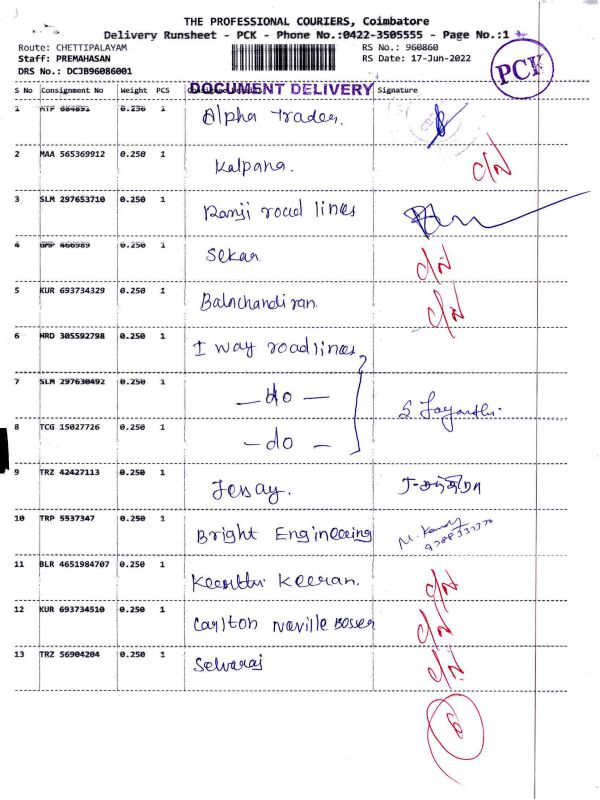 THE PROFESSIONAL COURIERS, Coimbatore
Delivery Runsheet - PCK - Phone No.:0422-3505555 - Page No.:1
Route: CHETTIPALAYAM RS No.: 960860
Staff: PREMAHASAN RS Date: 17-Jun-2022
DRS No.: DCJB96086001
PCK
DOCUMENT DELIVERY
S No Consignment No Weight PCS Signature
1 0.250 1 Alpha Trader.
2 MAA 565369912 0.250 1 Kalpana. c/n
3 SLM 297653710 0.250 1 Ranji road lines
4 0.250 1 Sekar c/n
5 KUR 693734329 0.250 1 Balachandiran. c/n
6 HRD 305592798 0.250 1 I way roadlines
7 SLM 297630492 0.250 1 — do — S Jayanthi.
8 TCG 15027726 0.250 1 — do —
9 TRZ 42427113 0.250 1
10 TRP 5537347 0.250 1 Bright Engineering
11 BLR 4651984707 0.250 1 Keerthi Keeran. c/n
12 KUR 693734510 0.250 1 Carlton Neville Bosen c/n
13 TRZ 56904204 0.250 1 Selvaraj c/n